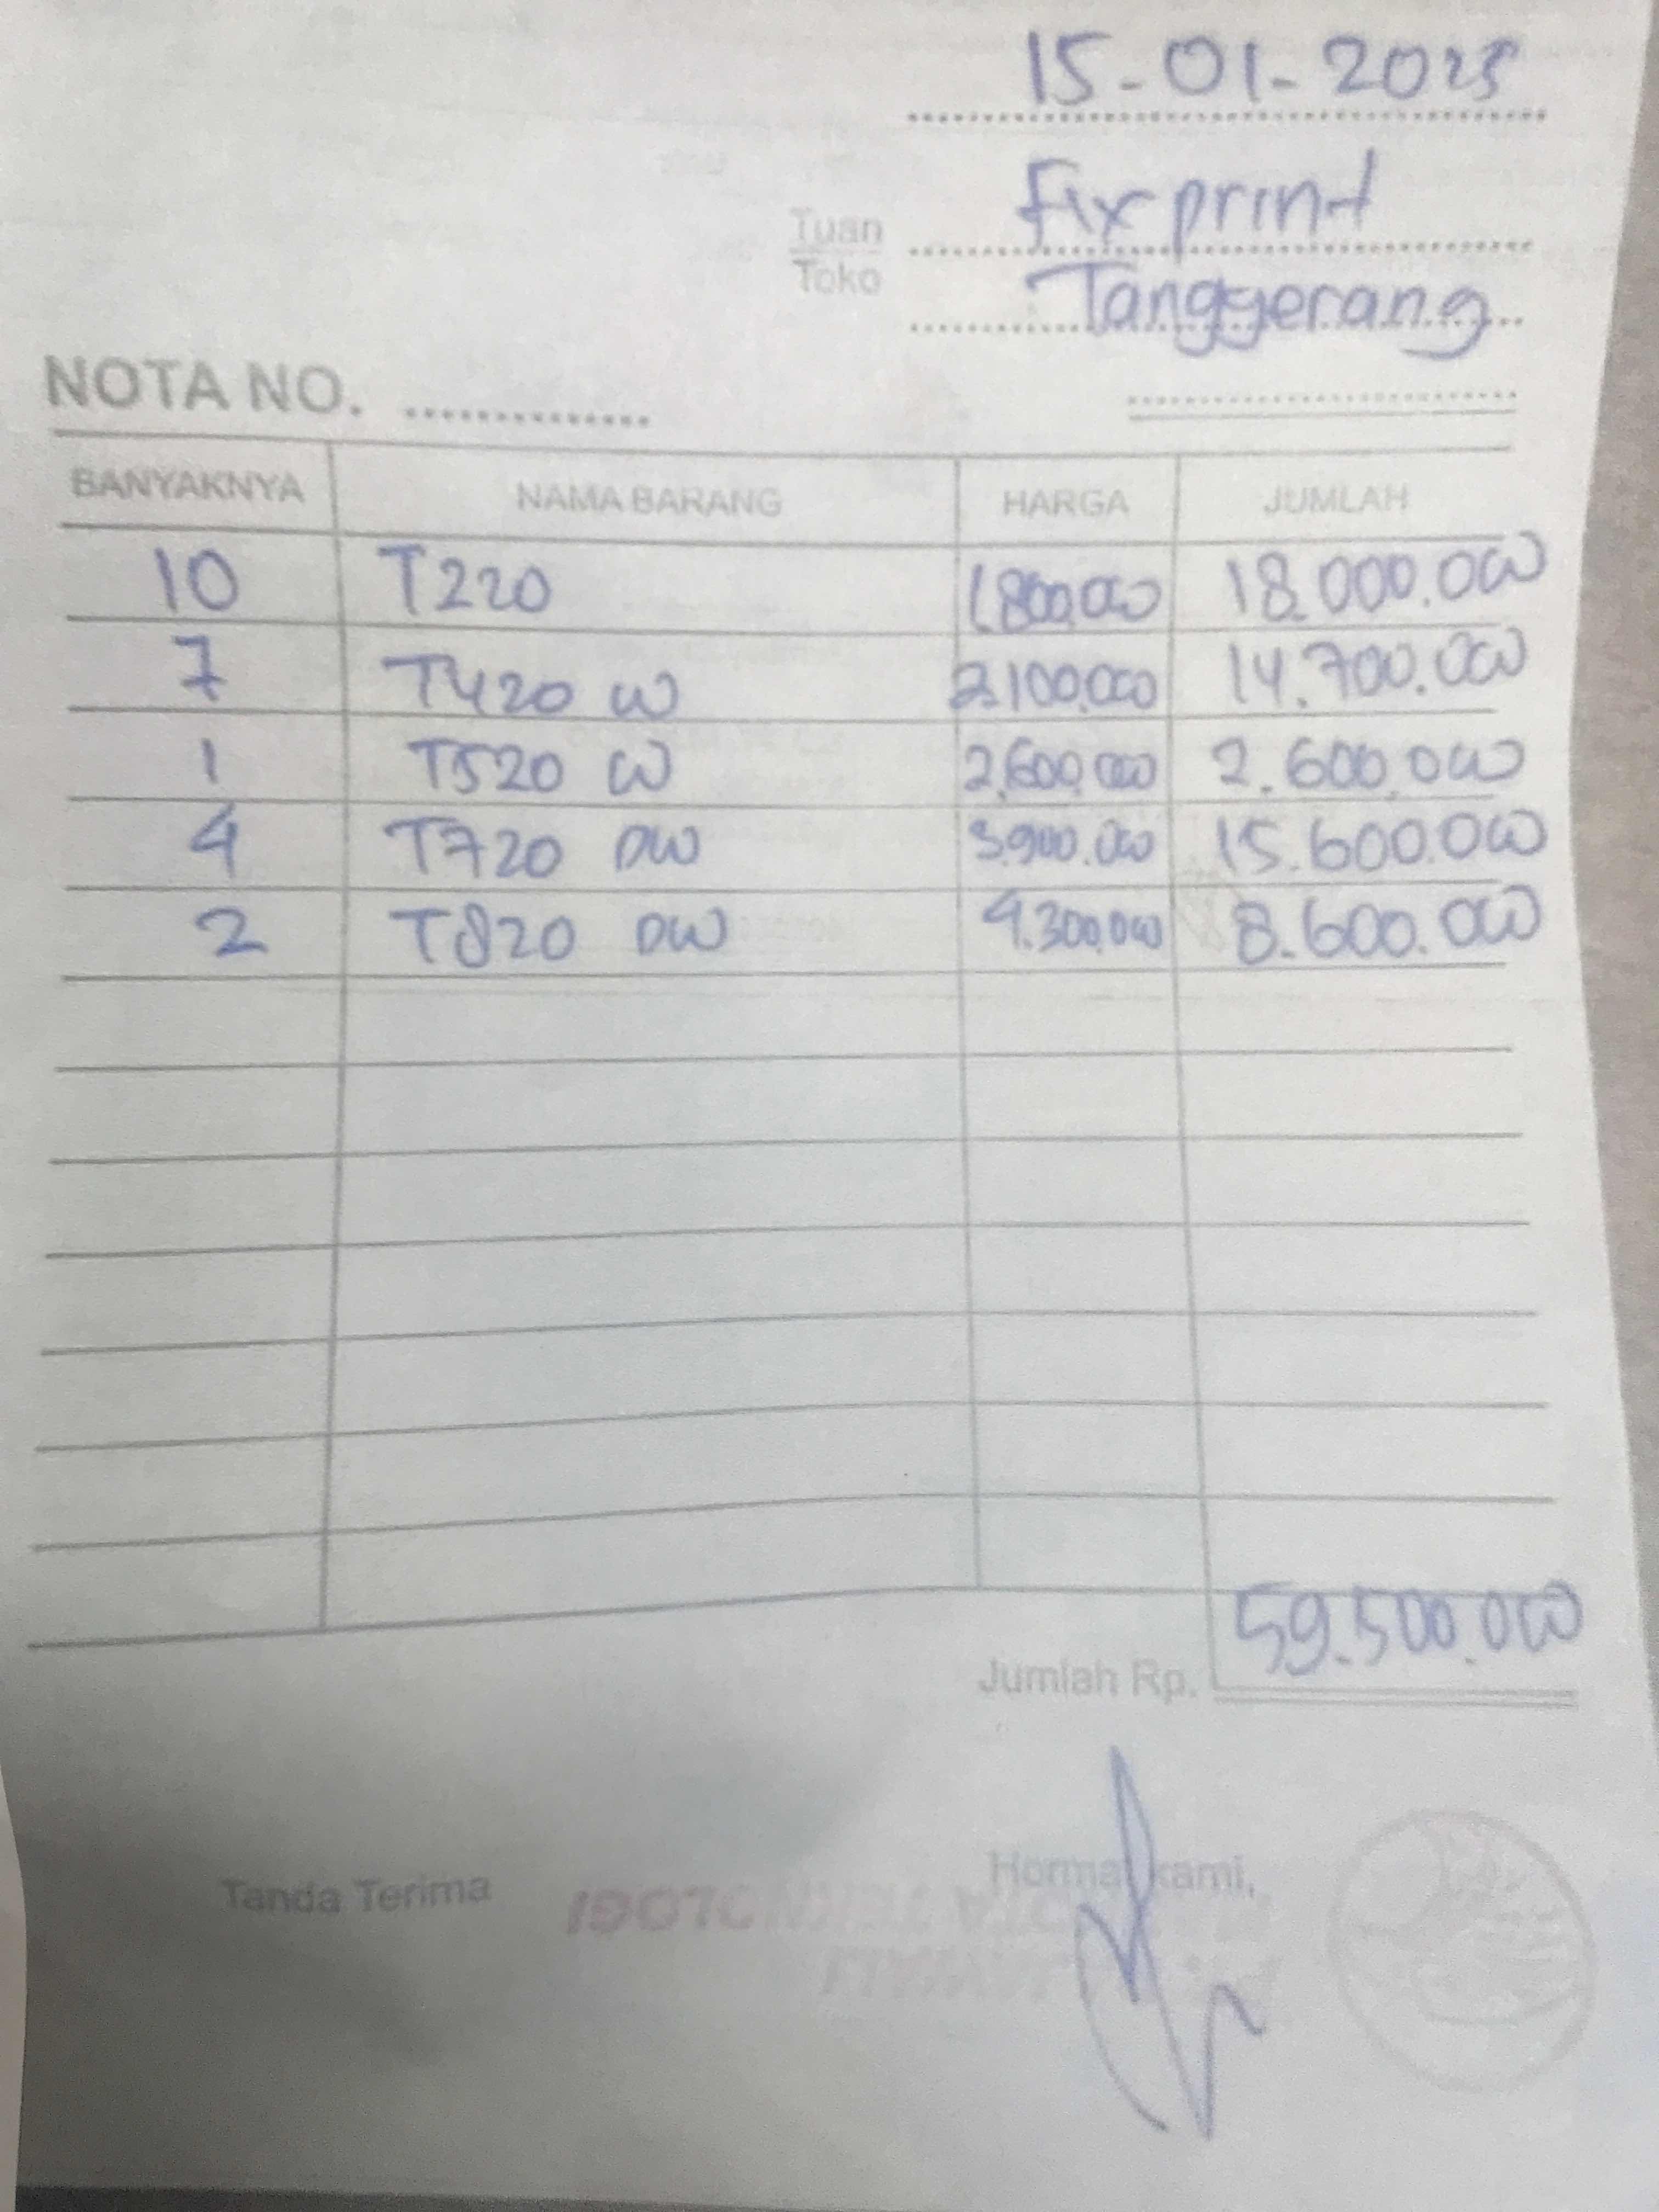 15-01-2025
Tuan Fixprint
Toko Tanggerang
NOTA NO.
BANYAKNYA NAMA BARANG HARGA JUMLAH
10 T220 1.800.000 18.000.000
7 T420 W 2.100.000 14.700.000
1 T520 W 2.600.000 2.600.000
4 T720 DW 3.900.000 15.600.000
2 T820 DW 4.300.000 8.600.000
Jumlah Rp. 59.500.000
Tanda Terima Hormat kami,